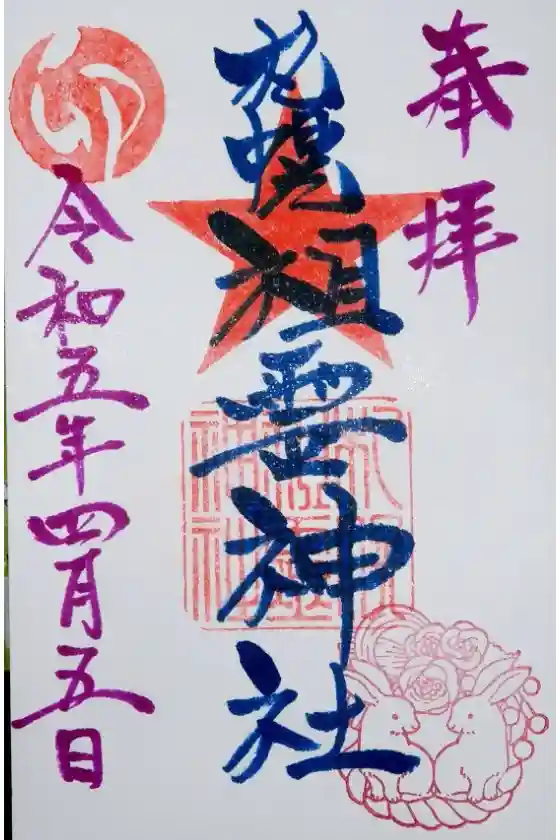 奉拝
札幌祖霊神社
令和五年四月五日